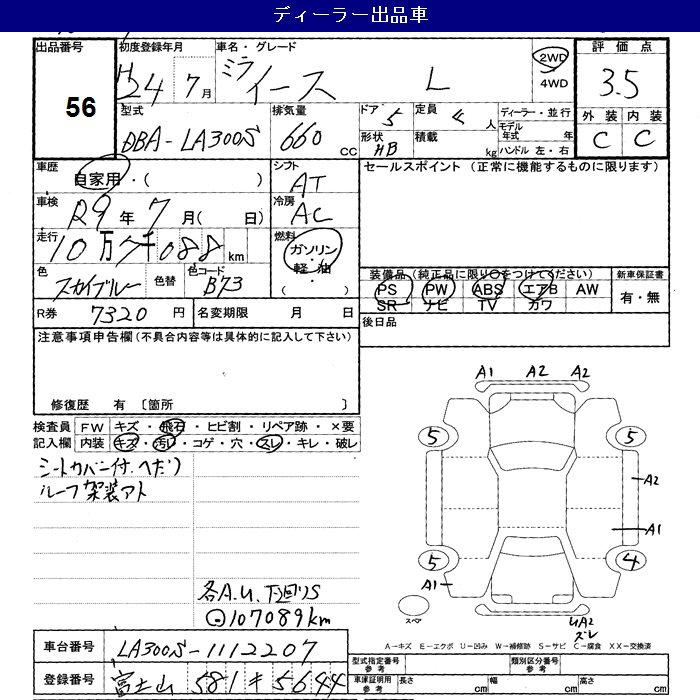 ディーラー出品車
出品番号 初度登録年月 車名・グレード 2WD 評価点
56 H24 7月 ミライース L 4WD 3.5
型式 排気量 ドア 定員 ディーラー・並行 外装 内装
DBA-LA300S 660 CC 5 4 人 モデル年式 年 C C
形状 HB 積載 kg ハンドル 左・右
車歴 シフト セールスポイント (正常に機能するものに限ります)
自家用・( ) AT
車検 冷房
R9年7月( 日) AC
走行 燃料
10万7千088km ガソリン・軽油・( )
色 色替 色コード 装備品(純正品に限り○をつけてください) 新車保証書
スカイブルー B73 PS PW ABS エアB AW 有・無
SR ナビ TV カワ
R券 7320 円 名変期限 月 日 後日品
注意事項申告欄(不具合内容等は具体的に記入して下さい)
修復歴 有 〔箇所 〕
A1 A2 A2
検査員 FW キズ・飛石・ヒビ割・リペア跡・×要
記入欄 内装 キズ・汚れ・コゲ・穴・スレ・キレ・破レ
5 5
シートカバー付.ヘタリ
ルーフ架装アト
A2
A1
5 4
A1
各A.U.下廻りS
⊙107089km
スペア
UA2
ズレ
A-キズ E-エクボ U-凹み W-補修跡 S-サビ C-腐食 XX-交換済
車台番号 LA300S-1112207
型式指定番号 参考 類別区分番号 参考
登録番号 富士山 581 そ 5644
車庫証明用 参考 長さ cm 幅 cm 高さ cm